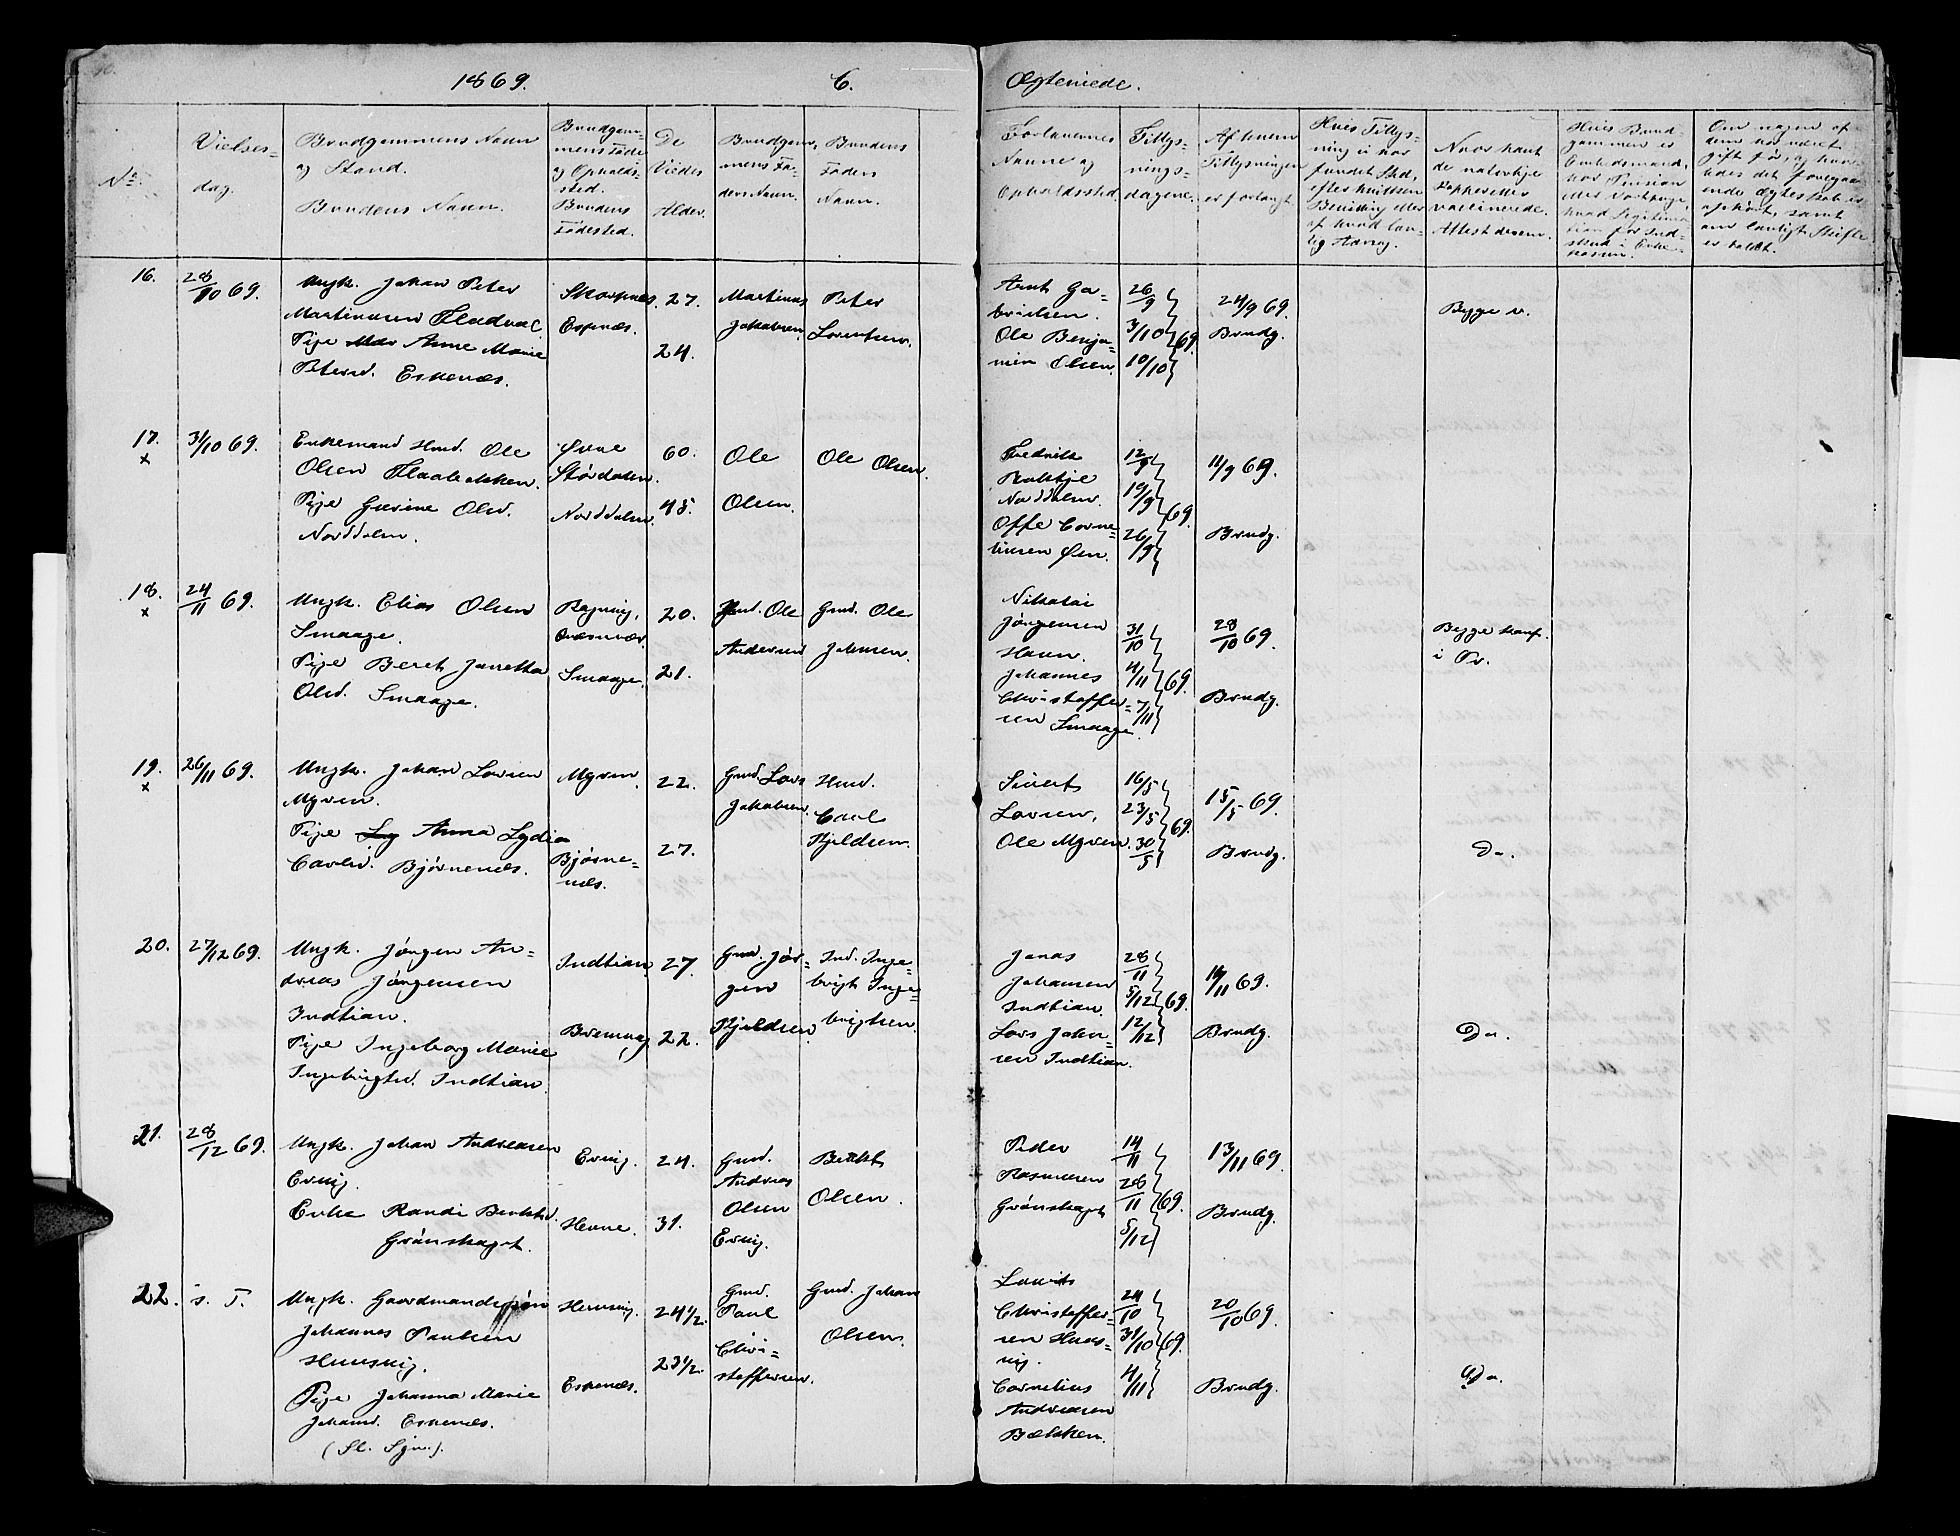 1869. C. Ægteviede.
No.
Vielses-
dag.
Brudgommens Navn
og Stand.
Brudens Navn.
Brudgom-
mens Føde
og Opholds-
sted.
Brudens
Fødested.
De
Viedes
Alder.
Brudgom-
mens Fa-
ders Navn.
Brudens
Faders
Navn.
Forlovernes
Navne og
Opholdssted.
Tillys-
nings-
dagene.
Af hvem
Tillysningen
er forlangt
Hvis Tillys-
ning ei har
fundet Sted,
efter hvilken
Bevilling eller
af hvad lov-
lig Aarsag.
Naar havt
de naturlige
Kopper eller
vaccinerede.
Attest derom.
Hvis Brud-
gommen er
Embedsmand,
har Pension
hvad Legitima-
tion for Ind-
skud i Enke-
kassen.
Om nogen af
dem har været
gift før, og hvor-
ledes det foregaa-
ende Ægteskab er
ophørt, samt
om lovligt Skifte
er holdt.
16.
28/10 69.
Ungk. Johan Peter
Martinusen Fladval
Pige Anne Marie
Petersd. Eskenæs.
27.
24.
Martinus
Jakobsen.
Peter
Lorentsen.
Arnt Ga-
brielsen.
Ole Benja-
min Olsen.
26/9
3/10 69.
10/10
24/9 69.
Brudg.
Begge v.
17.
x
31/10 69.
Enkemand Husd. Ole
Olsen Flaabekken.
Pige Gurine Olsd.
Norddalen.
Øvre
Stördalen.
Norddalen.
60.
45.
Ole
Olsen.
Ole Olsen.
Fredrik
Norddalen.
Offe Corne-
liusen Øien.
12/9
19/9 69.
26/9
11/9 69.
Brudg.
18.
x
24/11 69.
Ungk. Elias Olsen
Smaage.
Pige Beret Janetta
Olsd. Smaage.
Smaage.
20.
21.
Gmd. Ole
Andersen
Gmd. Ole
Johnsen.
Nikolai
Jörgensen
Havn.
Johannes
Christoffer-
sen Smaage.
31/10
4/11 69.
7/11
28/10 69.
Brudg.
19.
x
26/11 69.
Ungk. Johan Larsen
Myren.
Pige Anna Lydia
Carlsd. Bjørnenæs.
Myren.
Bjørne-
næs.
22.
27.
Gmd. Lars
Jakobsen.
Husd.
Carl
Kjeldsen.
Sivert
Larsen,
Ole Myren.
16/5
23/5 69.
30/5
15/5 69.
Brudg.
Do.
20.
27/12 69.
Ungk. Jörgen An-
dreas Jörgensen
Indtian.
Pige Ingeborg Marie
Ingebrigtsd. Indtian.
Indtian
Bremsnæs
27.
22.
Gmd. Jör-
gen
Kjeldsen.
Ind. Inge-
brigt Inge-
brigtsen.
Jonas
Johansen
Indtian
Lars John-
sen Indtian.
28/11
5/12 69.
12/12
Brudg.
Do.
21.
28/12 69.
Ungk. Johan Andreasen
Ervig.
Enke Randi Bentsd.
Grönskaget.
Ervig.
Hevne.
24.
31.
Gmd.
Andreas
Olsen
Ervig.
Olsen.
Peder
Rasmusen
Grönskaget
14/11
28/11 69.
5/12
13/11 69.
Brudg.
22.
s. T.
Ungk. Gaardmandssøn
Johannes Paulsen
Hunsvig.
Pige Johanna Marie
Johansd. Eskenæs.
Eskenæs.
24 1/2.
23 1/2.
Gmd.
Paul
Chri-
stoffersen.
Gmd. Johan
Olsen.
Laurits
Christoffer-
sen Huns-
vig.
Cornelius
Andreasen
Bækken.
24/10
31/10 69.
4/11
20/10 69.
Brudg.
Do.